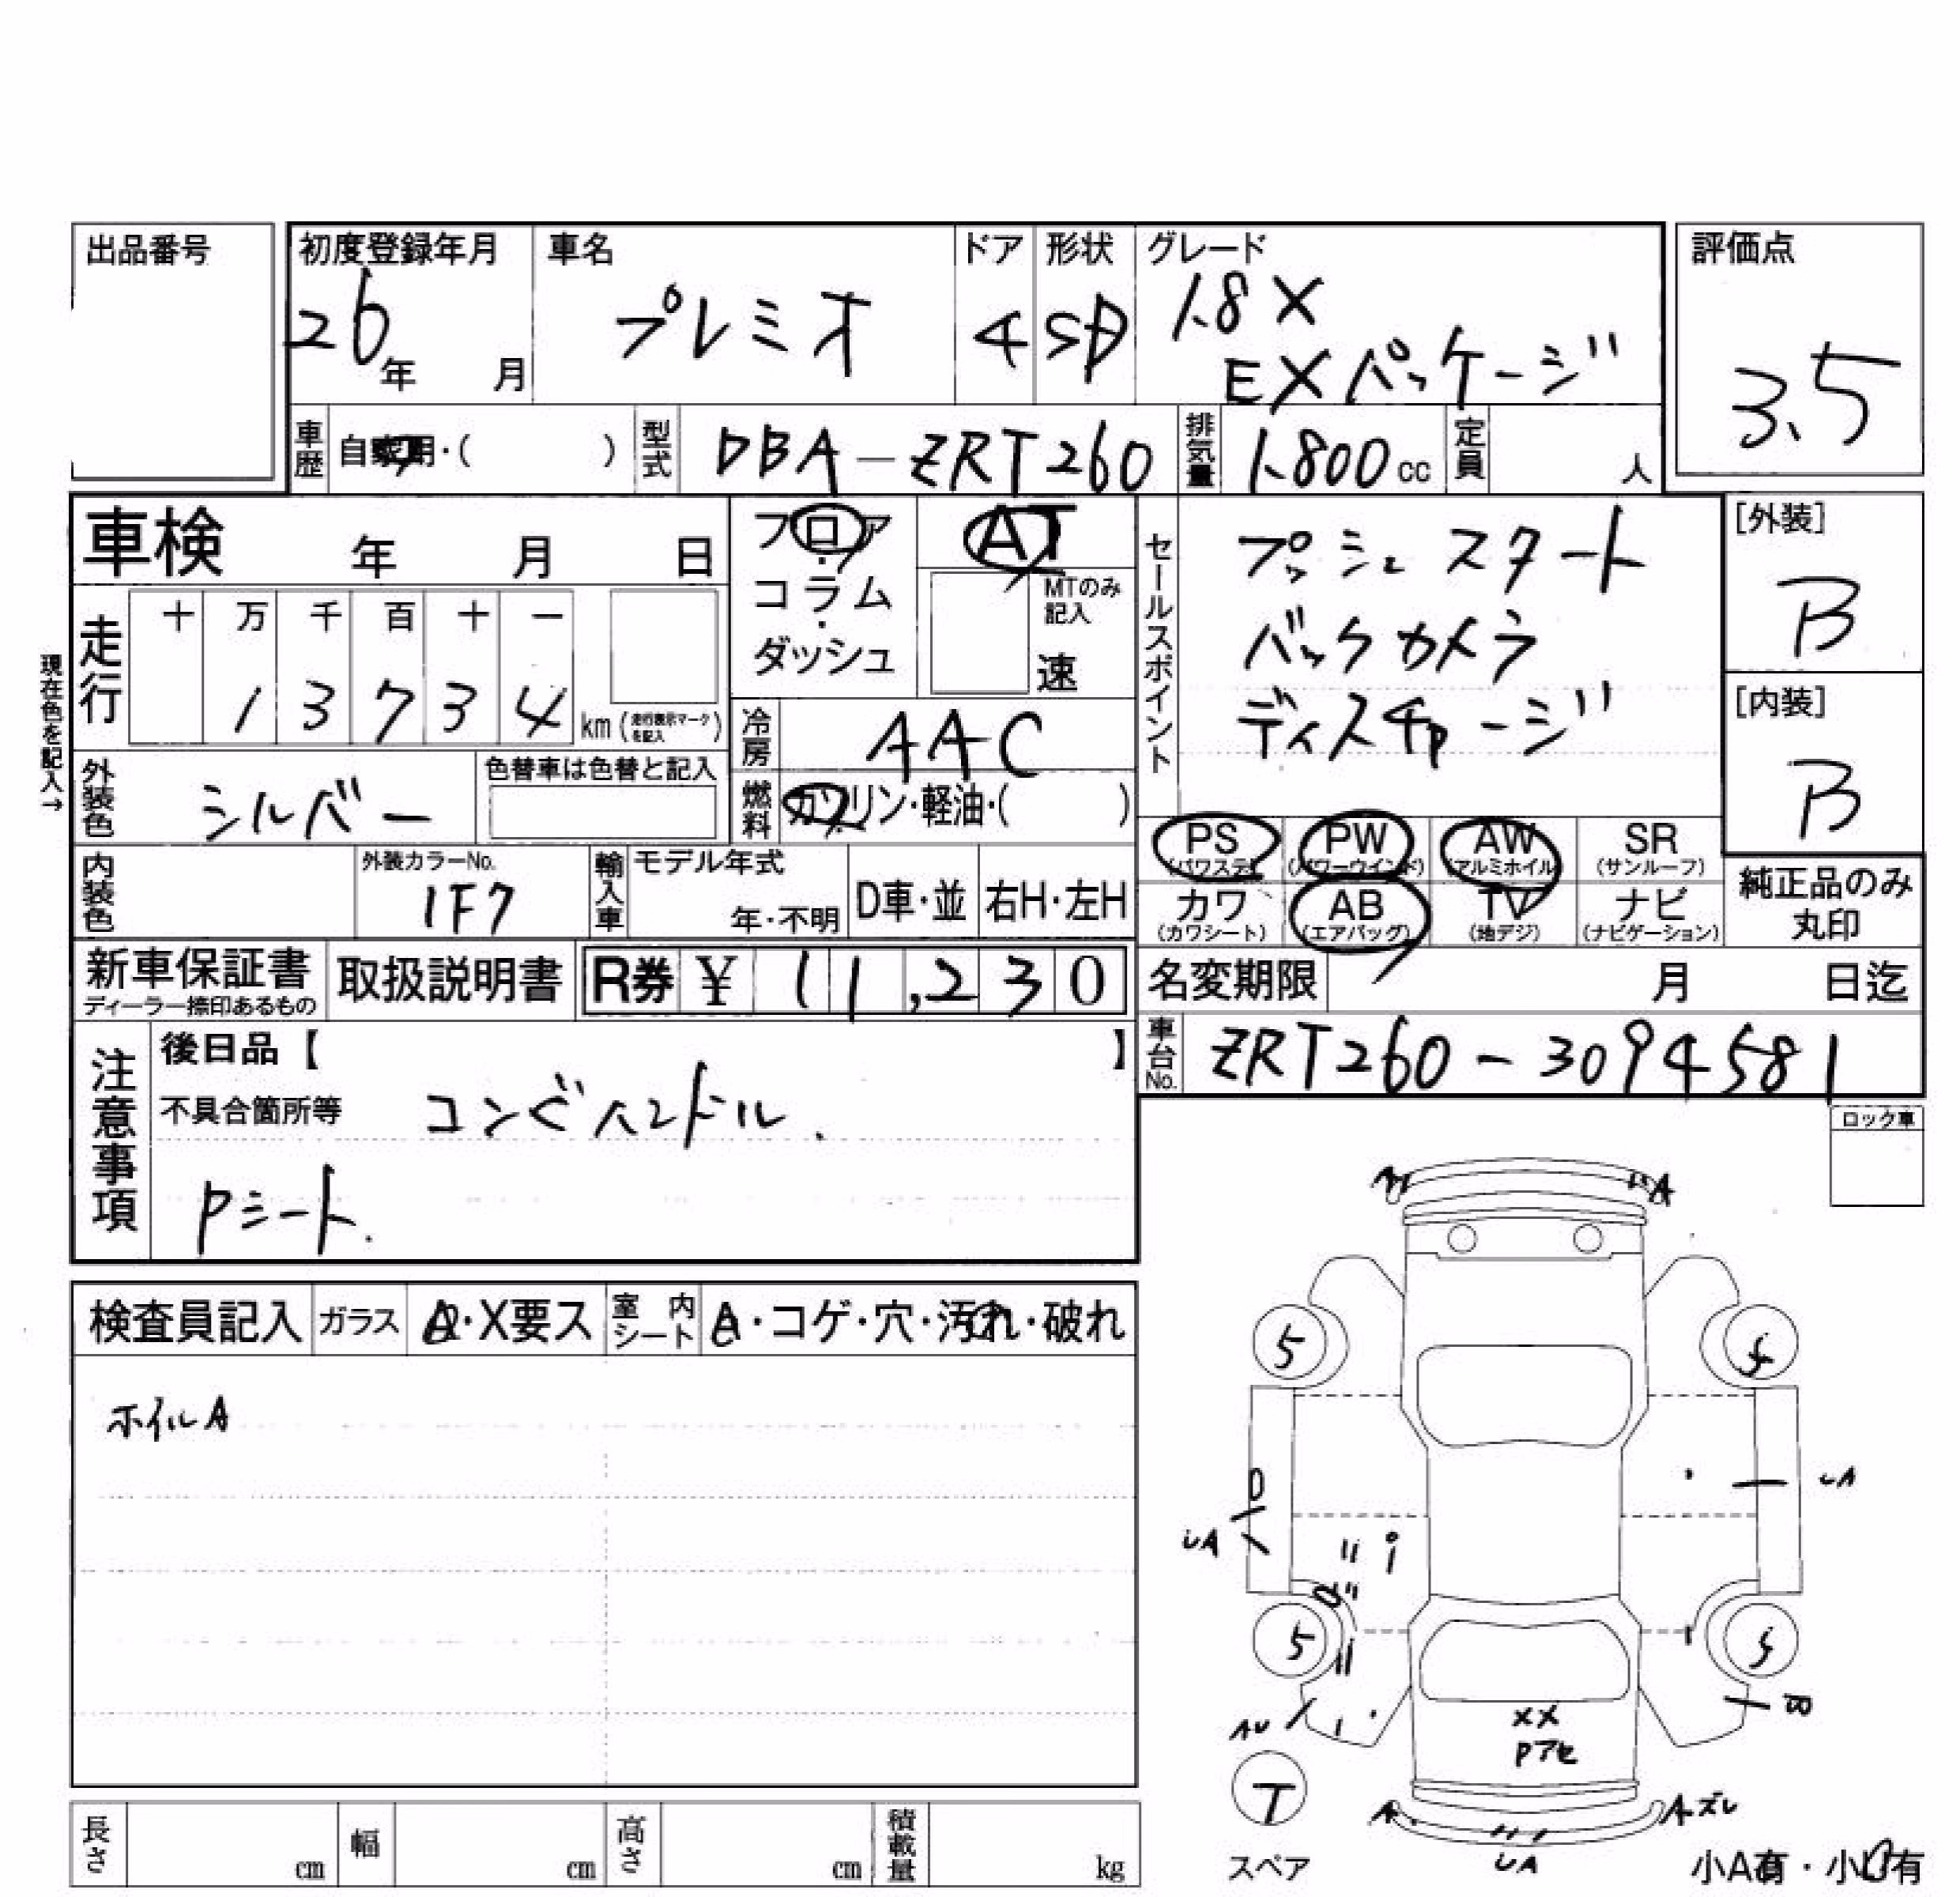 出品番号
初度登録年月 車名 ドア 形状 グレード 評価点
26年 月 プレミオ 4 SD 1.8X
EXパッケージ
3.5
車歴 自家用・( ) 型式 DBA-ZRT260 排気量 1.800cc 定員 人
車検 年 月 日
フロア・コラム・ダッシュ
AT
MTのみ記入
速
セールスポイント
プッシュスタート
バックカメラ
ディスチャージ
[外装]
B
[内装]
B
現在色を記入→
走行 十 万 千 百 十 一
1 3 7 3 4 km (走行表示マークを記入)
冷房 AAC
外装色 シルバー 色替車は色替と記入
燃料 ガソリン・軽油・( )
PS (パワステ) PW (パワーウインド) AW (アルミホイル) SR (サンルーフ)
カワ (カワシート) AB (エアバッグ) TV (地デジ) ナビ (ナビゲーション)
純正品のみ
丸印
内装色 外装カラーNo. 1F7 輸入車 モデル年式 年・不明 D車・並 右H・左H
新車保証書 ディーラー捺印あるもの 取扱説明書 R券 ¥ 11,230
名変期限 月 日迄
車台No. ZRT260-3094581
注意事項
後日品【 】
不具合箇所等 コンビハンドル.
Pシート.
ロック車
検査員記入 ガラス A・X要ス 室内シート A・コゲ・穴・汚れ・破れ
ホイルA
A
5 5
UA UA
5 5
AU B
XX
Pアセ
T
スペア
A Aズレ
UA
小A有・小U有
長さ cm 幅 cm 高さ cm 積載量 kg